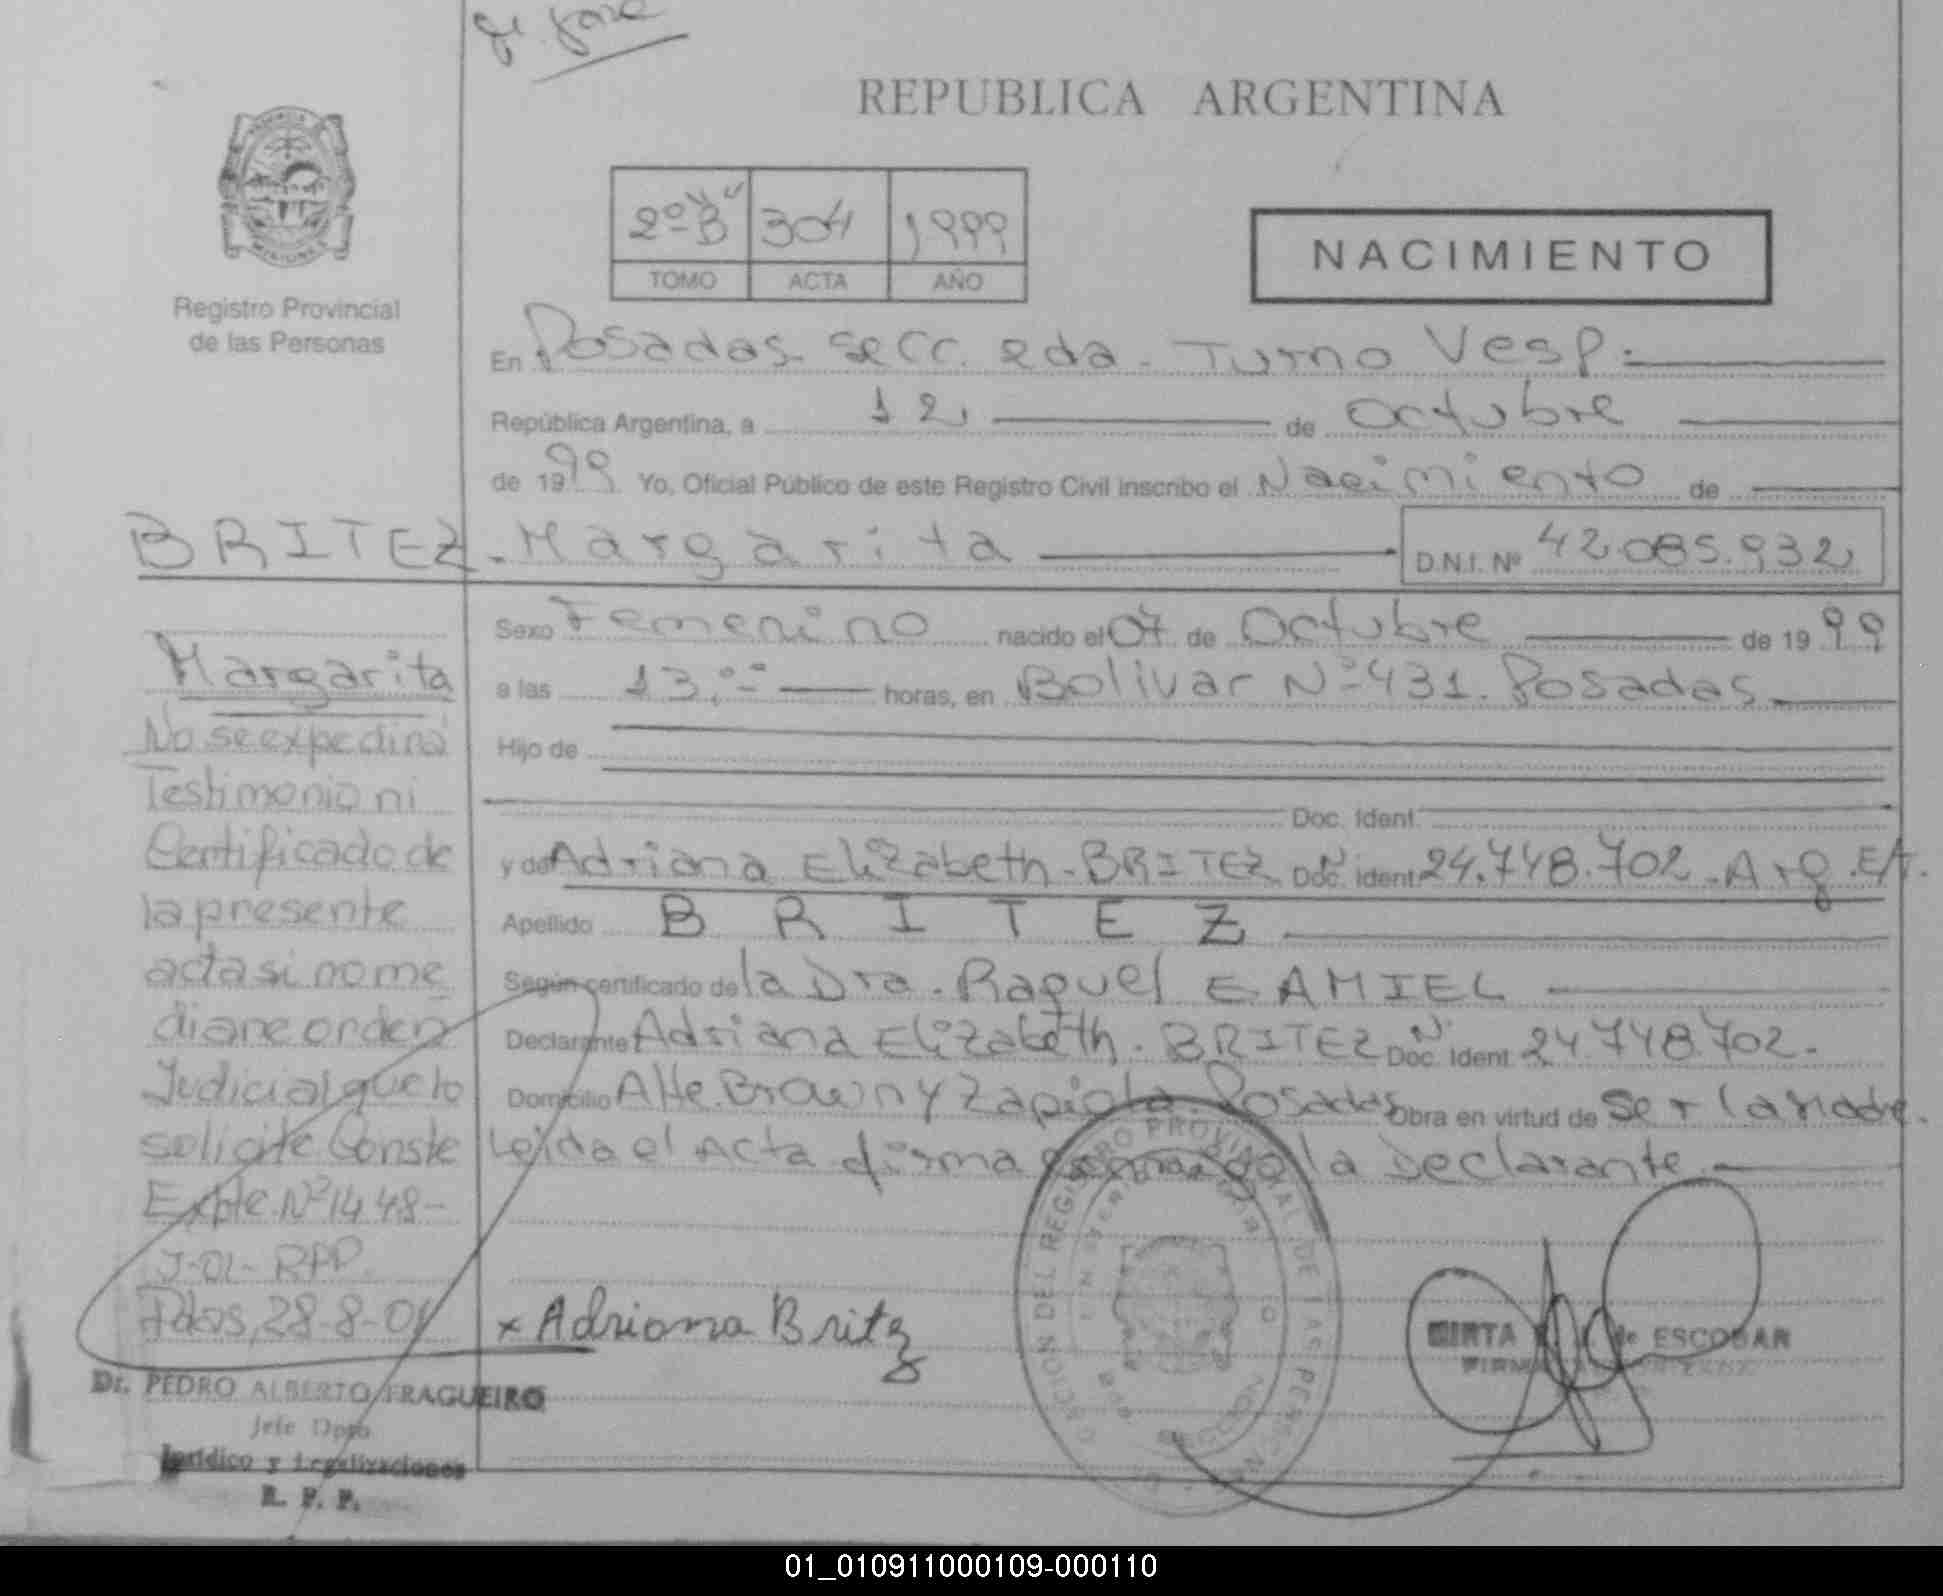 REPUBLICA ARGENTINA
2º "B" 304 1999
TOMO ACTA AÑO
NACIMIENTO
Registro Provincial
de las Personas
En Posadas. Secc. 2da. Turno Vesp:
República Argentina, a 12 de Octubre
de 1999 Yo, Oficial Público de este Registro Civil inscribo el Nacimiento de
BRITEZ. Margarita D.N.I. Nº 42.085.932
Sexo Femenino nacido el 07 de Octubre de 1999
a las 13:00 horas, en Bolivar Nº 431. Posadas
Hijo de
Doc. Ident.
y de Adriana Elizabeth. BRITEZ Doc. Ident. Nº 24.748.702. Arg.
Apellido BRITEZ
Según certificado de la Dra. Raquel E. AMIEL
Declarante Adriana Elizabeth. BRITEZ Doc. Ident. Nº 24.748.702.
Domicilio Alte. Brown y Zapiola. Posadas Obra en virtud de ser la Madre.
Leida el Acta firma la Declarante.
Margarita
No se expedirá
Testimonio ni
Certificado de
la presente
acta si no me
diare orden
Judicial que lo
solicite Conste
Expte. Nº 1448-
J-01- RPP.
Pdas, 28-8-01
x Adriana Britez
Dr. PEDRO ALBERTO FRAGUEIRO
Jefe Dpto
Jurídico y Legalizaciones
R. P. P.
DIRECCION DEL REGISTRO PROVINCIAL DE LAS PERSONAS
MIRTA de ESCOBAR
01_010911000109-000110